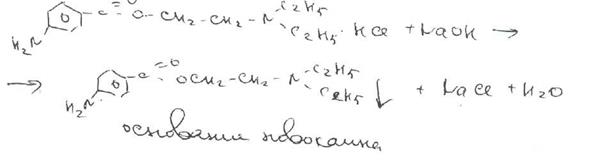 H₂N – C =O O–CH₂–CH₂–N C₂H₅ C₂H₅ · HCl + NaOH →
→ H₂N – C =O OCH₂–CH₂–N C₂H₅ C₂H₅ ↓ + NaCl + H₂O
основание новокаина